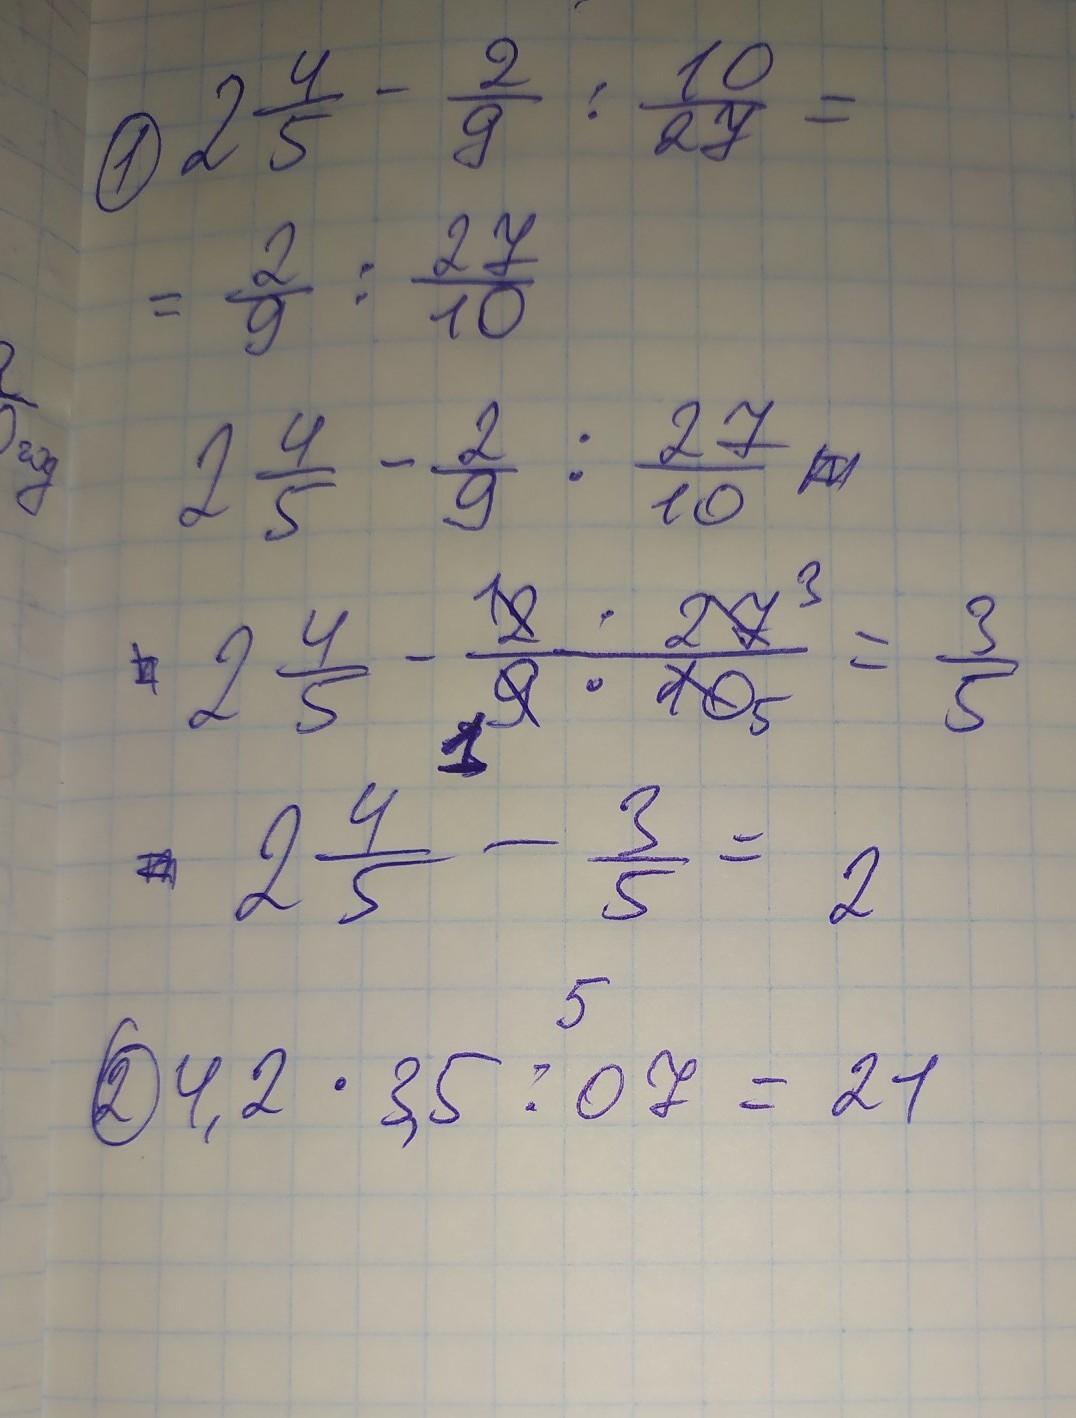 ① 2 4/5 - 2/9 : 10/27 =
= 2/9 : 27/10
2 4/5 - 2/9 : 27/10
2 4/5 - 2 · 27/9 · 10 = 3/5
1 3 1 5
2 4/5 - 3/5 = 2
5
② 4,2 · 3,5 : 07 = 21
год